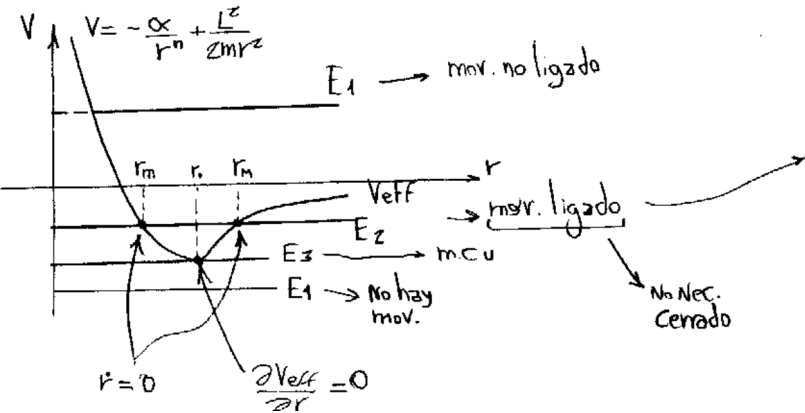 V
V = - α/rⁿ + L²/2mr²
E₁ → mov. no ligado
rₘ r₀ r_M r
Veff
E₂ → mov. ligado
E₃ → m.c.u
E₁ → No hay
mov.
No Nec.
Cerrado
ṙ = 0
∂Veff/∂r = 0